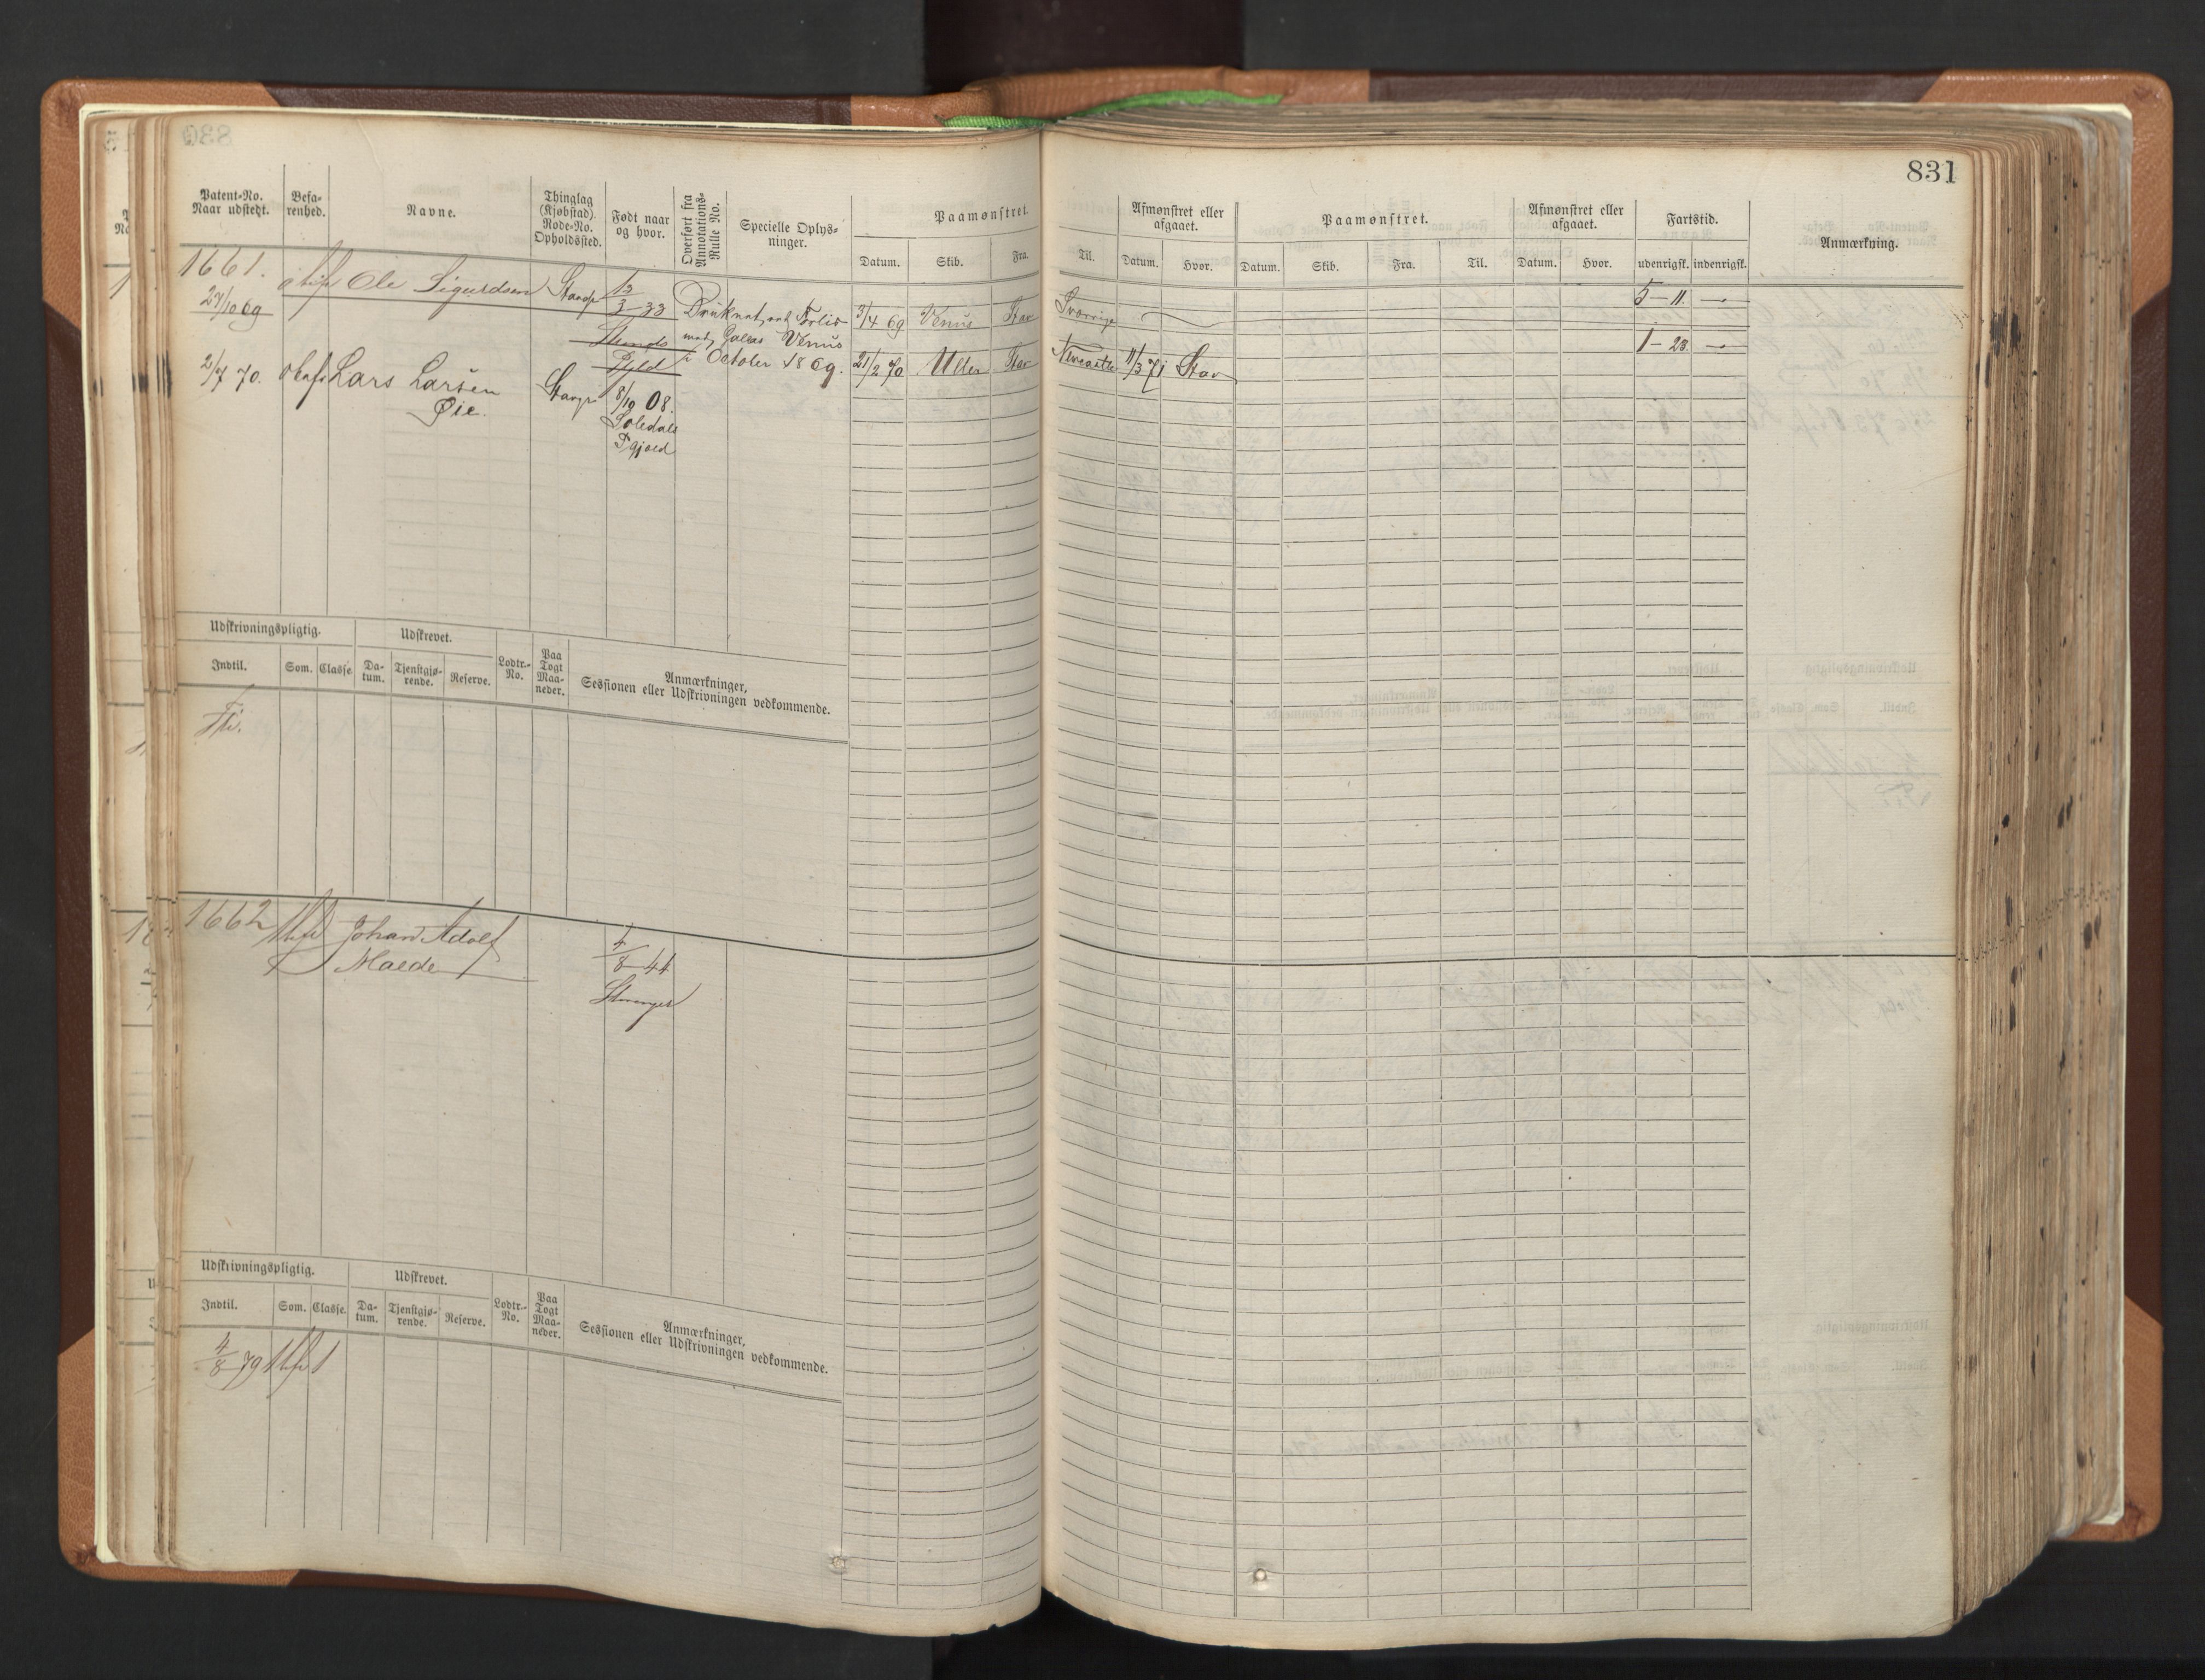 831
Patent-No. Naar udstedt.
Befa-renhed.
Navne.
Thinglag (Kjøbstad) Rode-No. Opholdssted.
Født naar og hvor.
Overført fra Annotations-Rulle No.
Specielle Oplys-ninger.
Paamønstret.
Datum. Skib. Fra. Til.
Afmønstret eller afgaaet.
Datum. Hvor.
Paamønstret.
Datum. Skib. Fra. Til.
Afmønstret eller afgaaet.
Datum. Hvor.
Fartstid.
udenrigsk. indenrigsk.
Anmærkning.
1661. Ole Sigurdsen
27/10 69
3-33
Druknet
Venus
October 1869.
3/4 69 Venus Stav Sverrige
5-11. -
1-23. -
2/7 70. Lars Larsen
Øie.
8/10 08.
21/2 70 Uller Stav Newcastle 11/3 71 Stav
Udskrivningspligtig.
Indtil. Som. Classe.
Udskrevet.
Da-tum. Tjenstgjø-rende. Reserve.
Lodtr.-No.
Paa Togt Maa-neder.
Anmærkninger, Sessionen eller Udskrivningen vedkommende.
1662 Johan Adolf
Malde
4/8 44
Stavanger
Udskrivningspligtig.
Indtil. Som. Classe.
Udskrevet.
Da-tum. Tjenstgjø-rende. Reserve.
Lodtr.-No.
Paa Togt Maa-neder.
Anmærkninger, Sessionen eller Udskrivningen vedkommende.
4/8 79 1